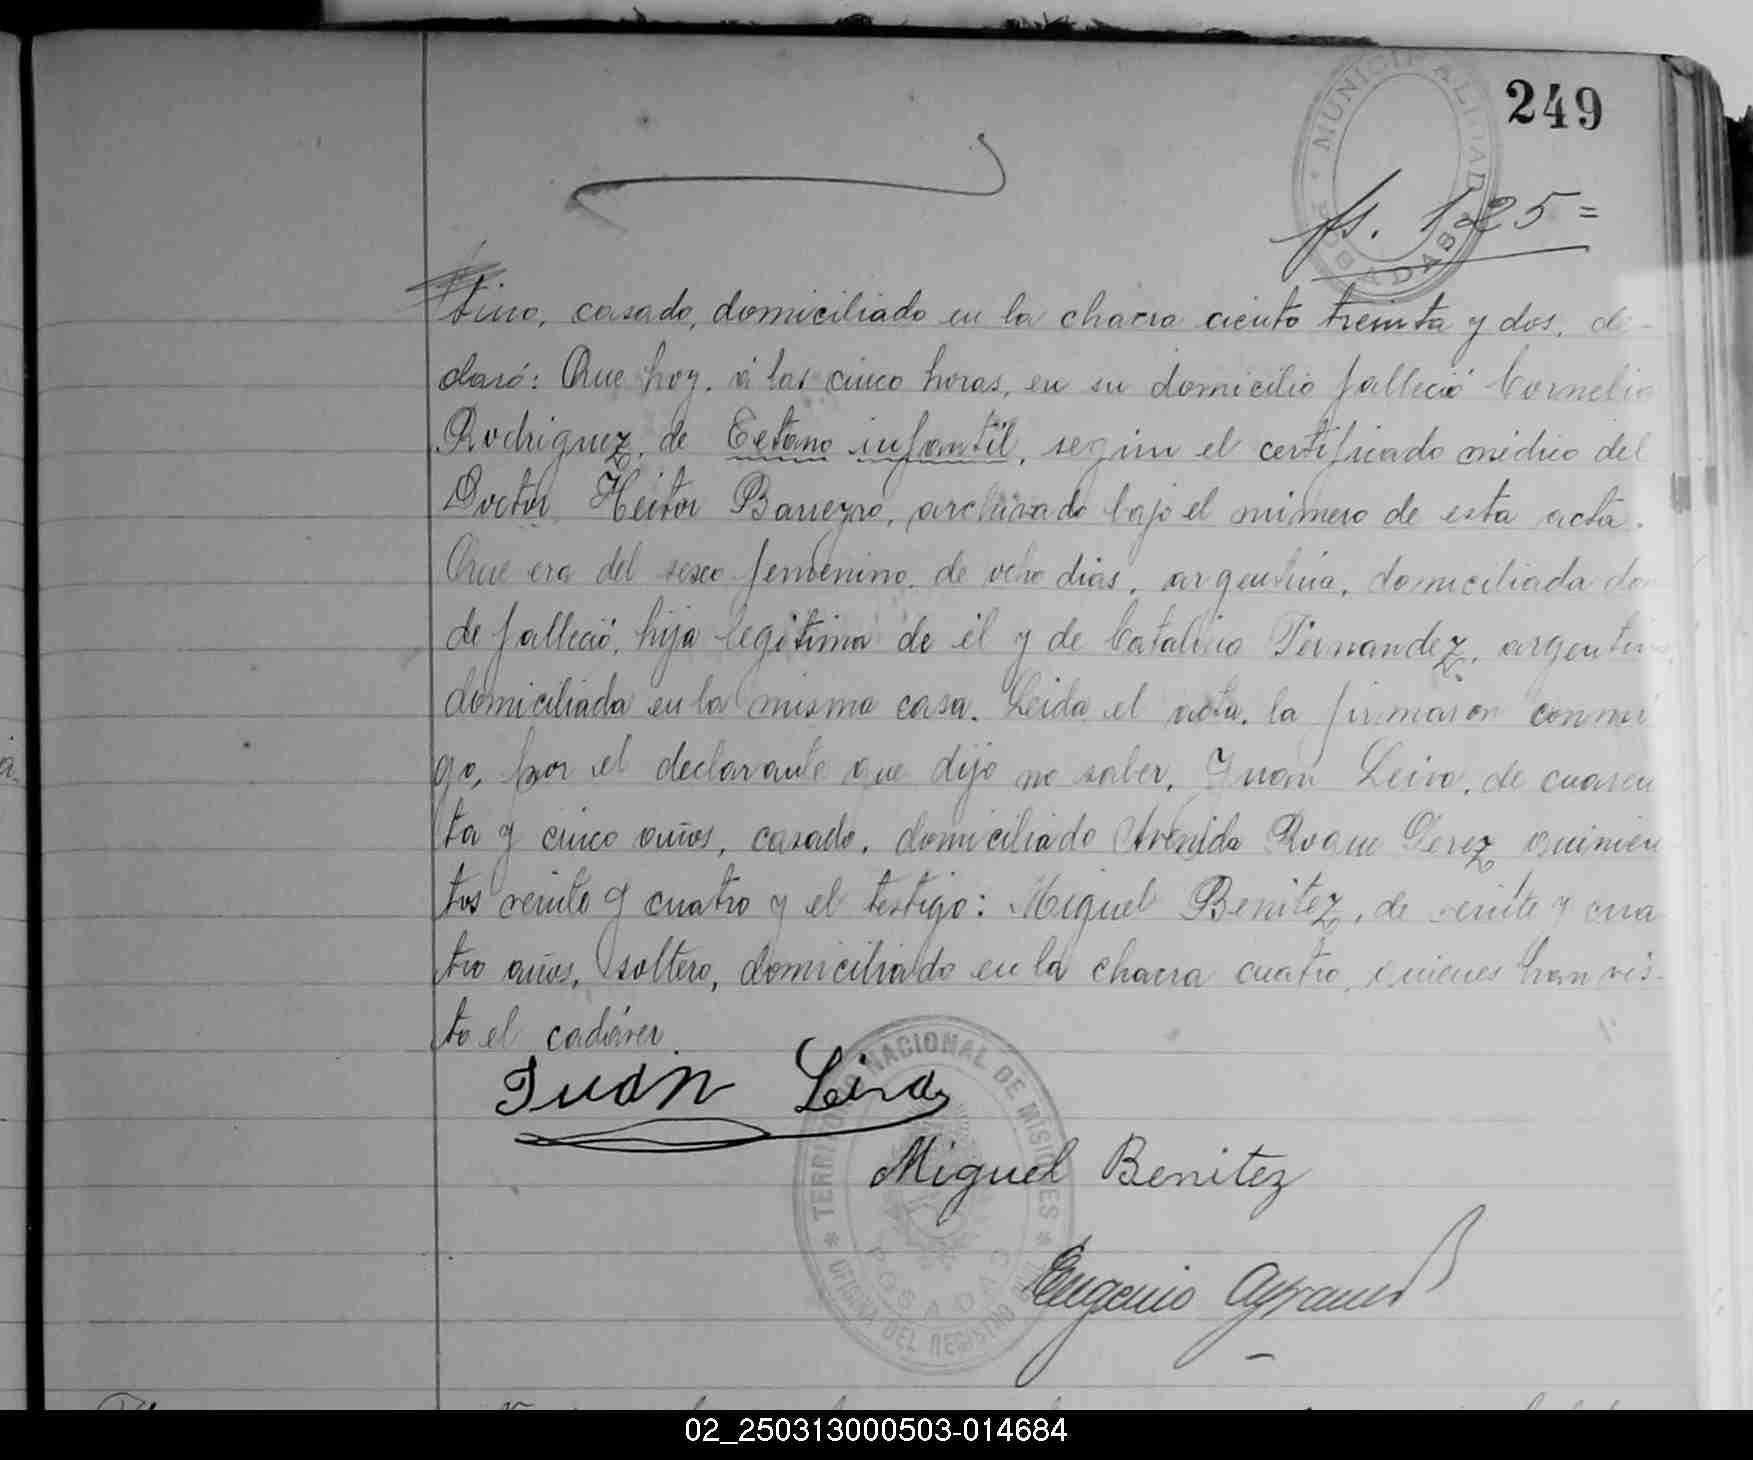 249
MUNICIPALIDAD DE POSADAS
fs. 125=
tino, casado, domiciliado en la chacra ciento treinta y dos, de-
claró: Que hoy, á las cinco horas, en su domicilio falleció Cornelia
Rodriguez, de Tetano infantil, segun el certificado médico del
Doctor Heitor Barreyro, archivado bajo el número de esta acta.
Que era del sexo femenino, de ocho dias, argentina, domiciliada don
de falleció, hija legitima de él y de Catalina Fernandez, argentina,
domiciliada en la misma casa. Leida el acta, la firmaron conmi
go, por el declarante que dijo no saber, Juan Leiva, de cuaren
ta y cinco años, casado, domiciliado Avenida Roque Perez quinien
tos veinte y cuatro y el testigo: Miguel Benitez, de veinte y cua
tro años, soltero, domiciliado en la chacra cuatro, quienes han vis-
to el cadáver.
Juan Leiva
Miguel Benitez
Eugenio
TERRITORIO NACIONAL DE MISIONES
OFICINA DEL REGISTRO CIVIL
POSADAS
02_250313000503-014684